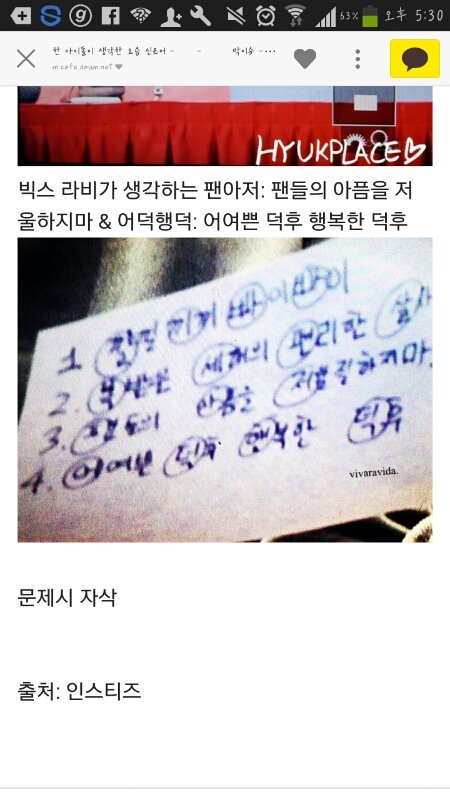 63% 오후 5:30
한 아이돌이 생각한 요즘 신조어 - - 막이슈 -…
m.cafe.daum.net
HYUKPLACE♡
빅스 라비가 생각하는 팬아저: 팬들의 아픔을 저
울하지마 & 어덕행덕: 어여쁜 덕후 행복한 덕후
1.
2. 편리한
3. 하지마.
4. 어여쁜 덕후 행복한 덕후
vivaravida.
문제시 자삭
출처: 인스티즈